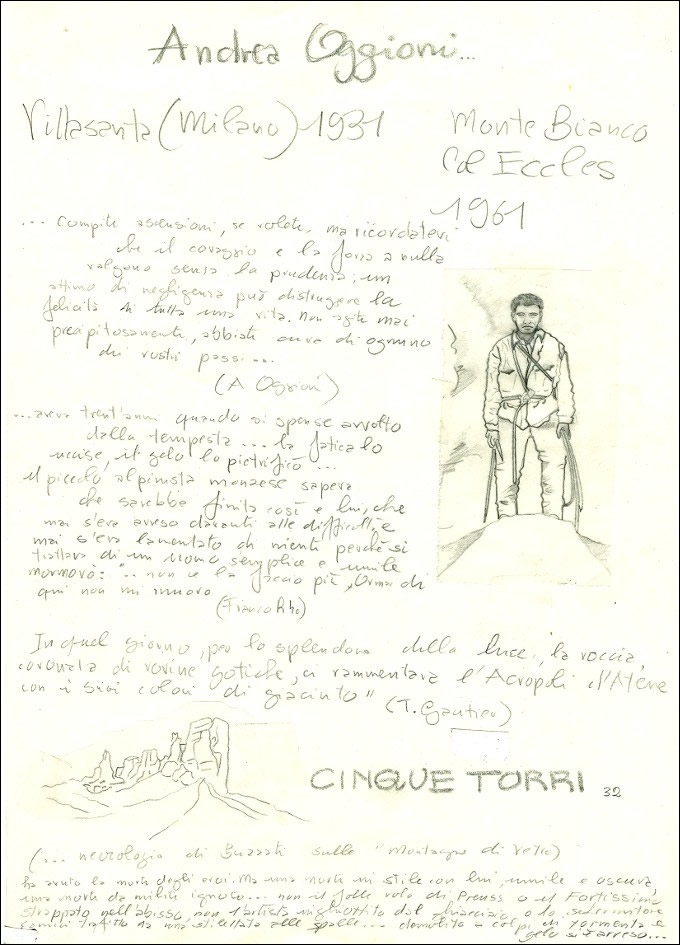 Andrea Oggioni...
Villasanta (Milano) 1931
Monte Bianco
Col Eccles
1961
... compite ascensioni, se volete, ma ricordatevi
che il coraggio e la forza a nulla
valgono senza la prudenza; un
attimo di negligenza può distruggere la
felicità di tutta una vita. Non agite mai
precipitosamente, abbiate cura di ognuno
dei vostri passi...
(A Oggioni)
...aveva trent'anni quando si spense avvolto
dalla tempesta... la fatica lo
uccise, il gelo lo pietrificò...
il piccolo alpinista monzese sapeva
che sarebbe finita così e lui, che
mai s'era arreso davanti alle difficoltà e
mai s'era lamentato di niente perchè si
trattava di un uomo semplice e umile
mormorò: "... non ce la faccio più, Ormai di
qui non mi muovo
(Franco Rho)
In quel giorno, per lo splendore della luce, la roccia,
coronata di rovine gotiche, ci rammentava l'Acropoli d'Atene
con i suoi colori di giacinto"
(T. Gautier)
CINQUE TORRI 32
(... necrologio di Buzzati sulle "Montagne di Vetro)
ha avuto la morte degli eroi. Ma una morte in stile con lui, umile e oscura,
una morte da milite ignoto... non il folle volo di Preuss o il Fortissimo
strappato nell'abisso, non l'artista inghiottito dal ghiacciaio, o lo schermitore
Comici trafitto da una stilettata alle spalle... demolito a colpi di tormenta e
gelo si è arreso...